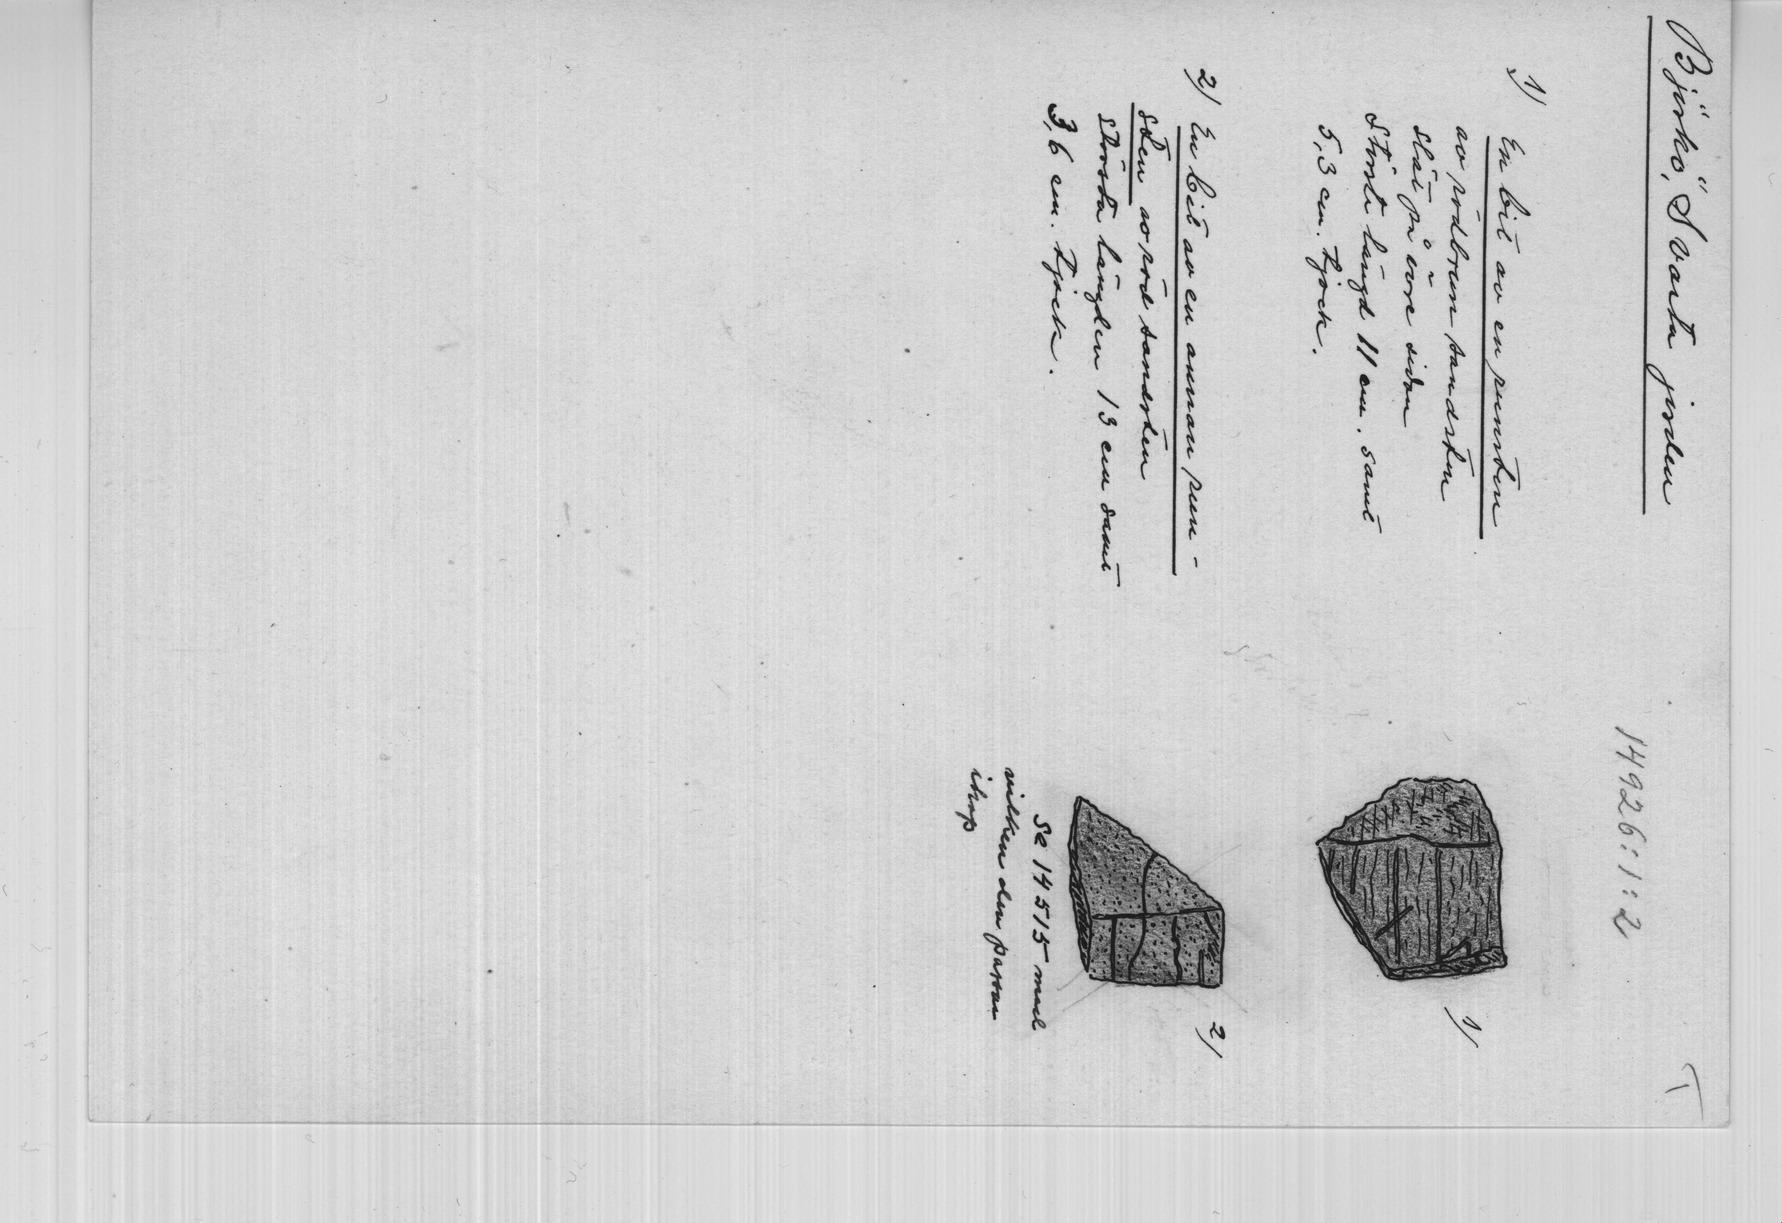 Björkö, Svarta jorden
14926:1:2
T
1) En bit av en runsten
av rödbrun sandsten
slät på övre sidan
Störst längd 11 cm. samt
5,3 cm. tjock.
1)
2) En bit av en annan run-
sten av röd sandsten
största längden 13 cm samt
3,6 cm. tjock.
2)
Se 14515 med
vilken den passar
ihop